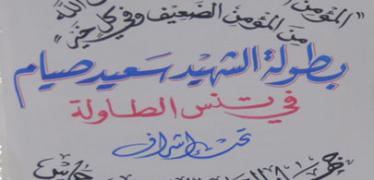 "المؤمن
الله
من المؤمن الضعيف وفي كل خير"
بطولة الشهيد سعيد صيام
في تنس الطاولة
تحت إشراف